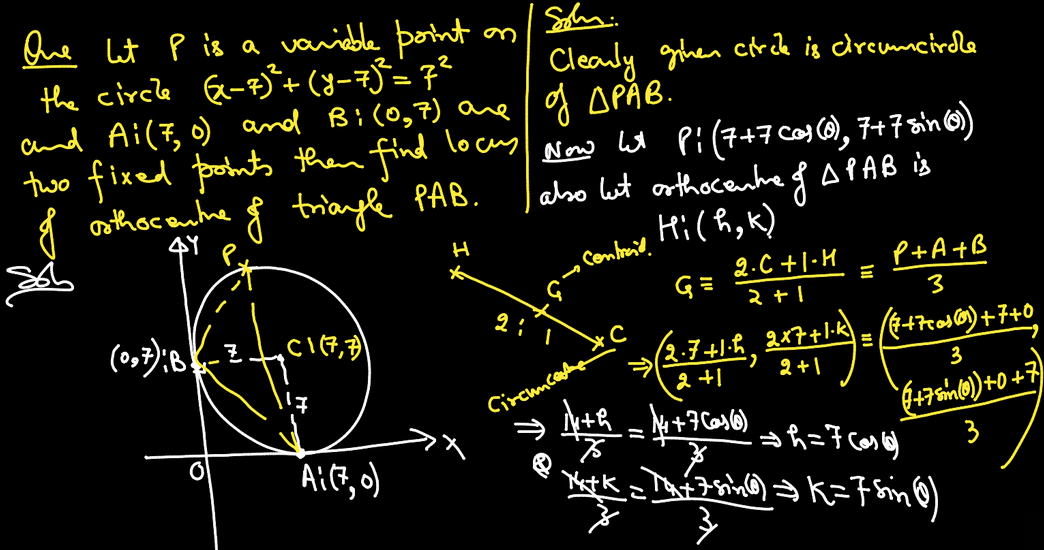 Que Let P is a variable point on
the circle (x-7)²+(y-7)²=7²
and A:(7,0) and B:(0,7) are
two fixed points then find locus
of orthocentre of triangle PAB.
Soln
Y
P
(0,7):B
7
C:(7,7)
7
O
A:(7,0)
X
Soln:
Clearly given circle is circumcircle
of △PAB.
Now let P:(7+7cos(θ), 7+7sin(θ))
also let orthocentre of △PAB is
H:(h,k)
H
G → Centroid.
2 : 1
C
Circumcentre
G ≡ (2·C+1·H)/(2+1) ≡ (P+A+B)/3
⇒ ((2·7+1·h)/(2+1), (2×7+1·k)/(2+1)) ≡ (((7+7cos(θ))+7+0)/3, ((7+7sin(θ))+0+7)/3)
⇒ (14+h)/3 = (14+7cos(θ))/3 ⇒ h=7cos(θ)
& (14+k)/3 = (14+7sin(θ))/3 ⇒ k=7sin(θ)